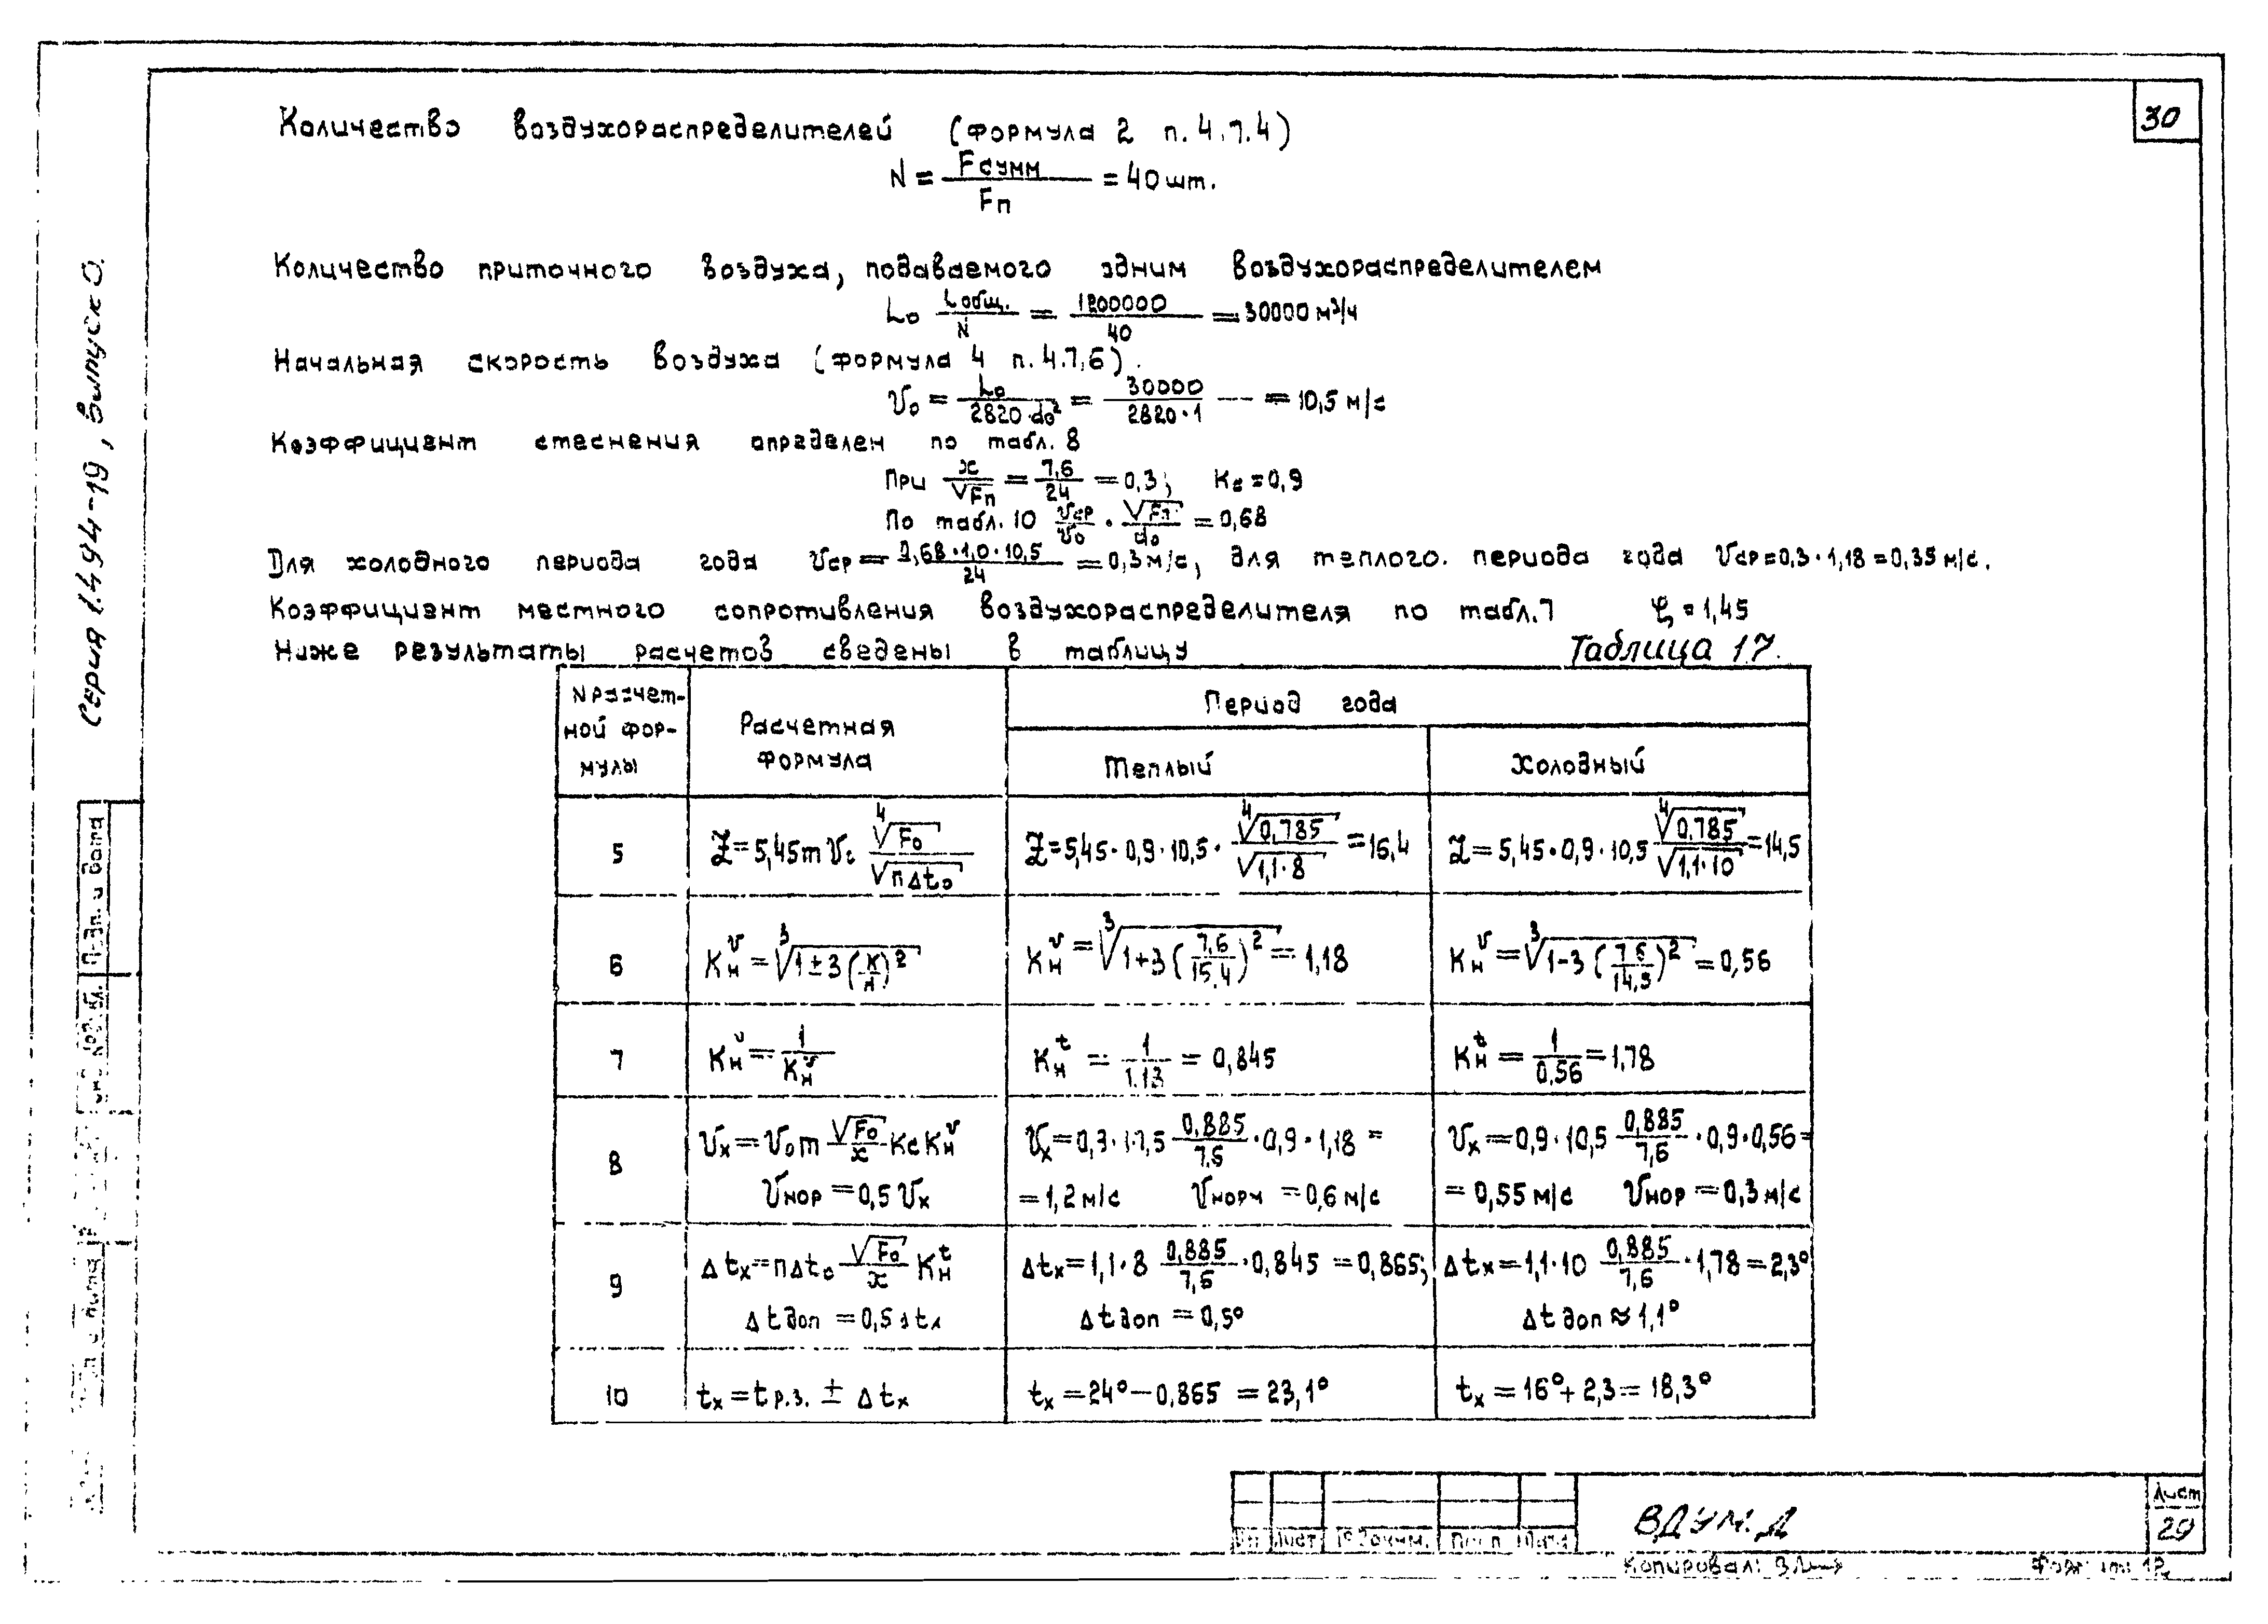 30
Количество воздухораспределителей (формула 2 п. 4.7.4)
N = Fсумм / Fп = 40 шт.
Количество приточного воздуха, подаваемого одним воздухораспределителем
Lо Lобщ. / N = 1200000 / 40 = 30000 м³/ч
Начальная скорость воздуха (формула 4 п. 4.7.6).
V₀ = L₀ / 2820·d₀² = 30000 / 2820·1 = 10,5 м/с
Коэффициент стеснения определен по табл. 8
При x / √Fп = 7,6 / 24 = 0,3; Kс = 0,9
По табл. 10 Vср / V₀ · √Fп / d₀ = 0,68
Для холодного периода года Vср = 0,68·1,0·10,5 / 24 = 0,3 м/с, для теплого. периода года Vср = 0,3·1,18 = 0,35 м/с.
Коэффициент местного сопротивления воздухораспределителя по табл. 7 ξ = 1,45
Ниже результаты расчетов сведены в таблицу
Таблица 17.
N расчетной формулы
Расчетная формула
Период года
Теплый
Холодный
5 Z = 5,45 m V₀ ⁴√F₀ / √nΔt₀ Z = 5,45·0,9·10,5· ⁴√0,785 / √1,1·8 = 15,4 Z = 5,45·0,9·10,5 ⁴√0,785 / √1,1·10 = 14,5
6 Kнᵛ = ³√1±3(x/н)² Kнᵛ = ³√1+3(7,6/15,4)² = 1,18 Kнᵛ = ³√1-3(7,6/14,5)² = 0,56
7 Kнᵛ = 1 / Kнᵛ Kнᵗ = 1 / 1.18 = 0,845 Kнᵗ = 1 / 0,56 = 1,78
8 Vx = V₀m √F₀ / x KсKнᵛ Vx = 0,9·10,5 0,885 / 7,6 ·0,9·1,18 = Vx = 0,9·10,5 0,885 / 7,6 ·0,9·0,56 =
Vнор = 0,5 Vx = 1,2 м/с Vнорм = 0,6 м/с = 0,55 м/с Vнор = 0,3 м/с
9 Δtx = nΔt₀ √F₀ / x Kнᵗ Δtx = 1,1·8 0,885 / 7,6 ·0,845 = 0,865; Δtx = 1,1·10 0,885 / 7,6 ·1,78 = 2,3°
Δtдоп = 0,5 Δtx Δtдоп = 0,5° Δtдоп ≈ 1,1°
10 tx = tр.з. ± Δtx tx = 24° - 0,865 = 23,1° tx = 16° + 2,3 = 18,3°
Серия 1.494-19, Выпуск 0.
Подп. и дата
Лист № докум. Подп. Дата
ВДУМ. Д
Лист
29
Копировал:
Формат 12